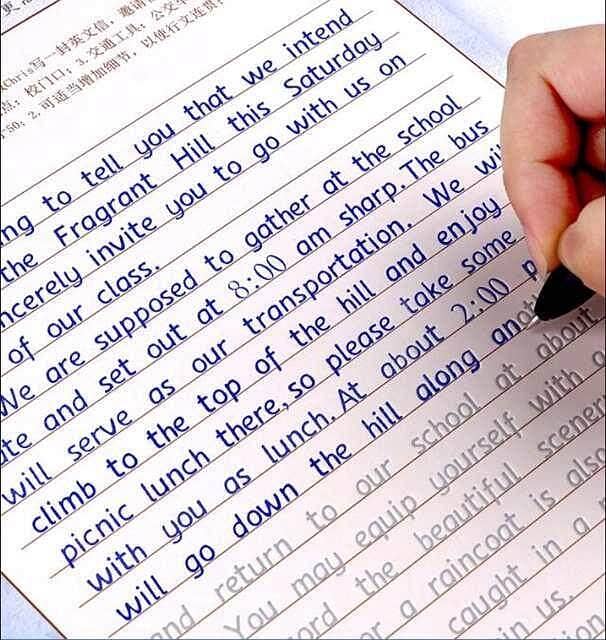 Chris写一封英文信,邀请
点:校门口;3.交通工具:公交车
50;2.可适当增加细节,以使行文连贯;
ng to tell you that we intend
the Fragrant Hill this Saturday
ncerely invite you to go with us on
of our class.
We are supposed to gather at the school
te and set out at 8:00 am sharp. The bus
will serve as our transportation. We wi
climb to the top of the hill and enjoy
picnic lunch there, so please take some
with you as lunch. At about 2:00 p
will go down the hill along ano
and return to our school at about
You may equip yourself with a
ord the beautiful scener
r a raincoat is also
caught in a
in us.